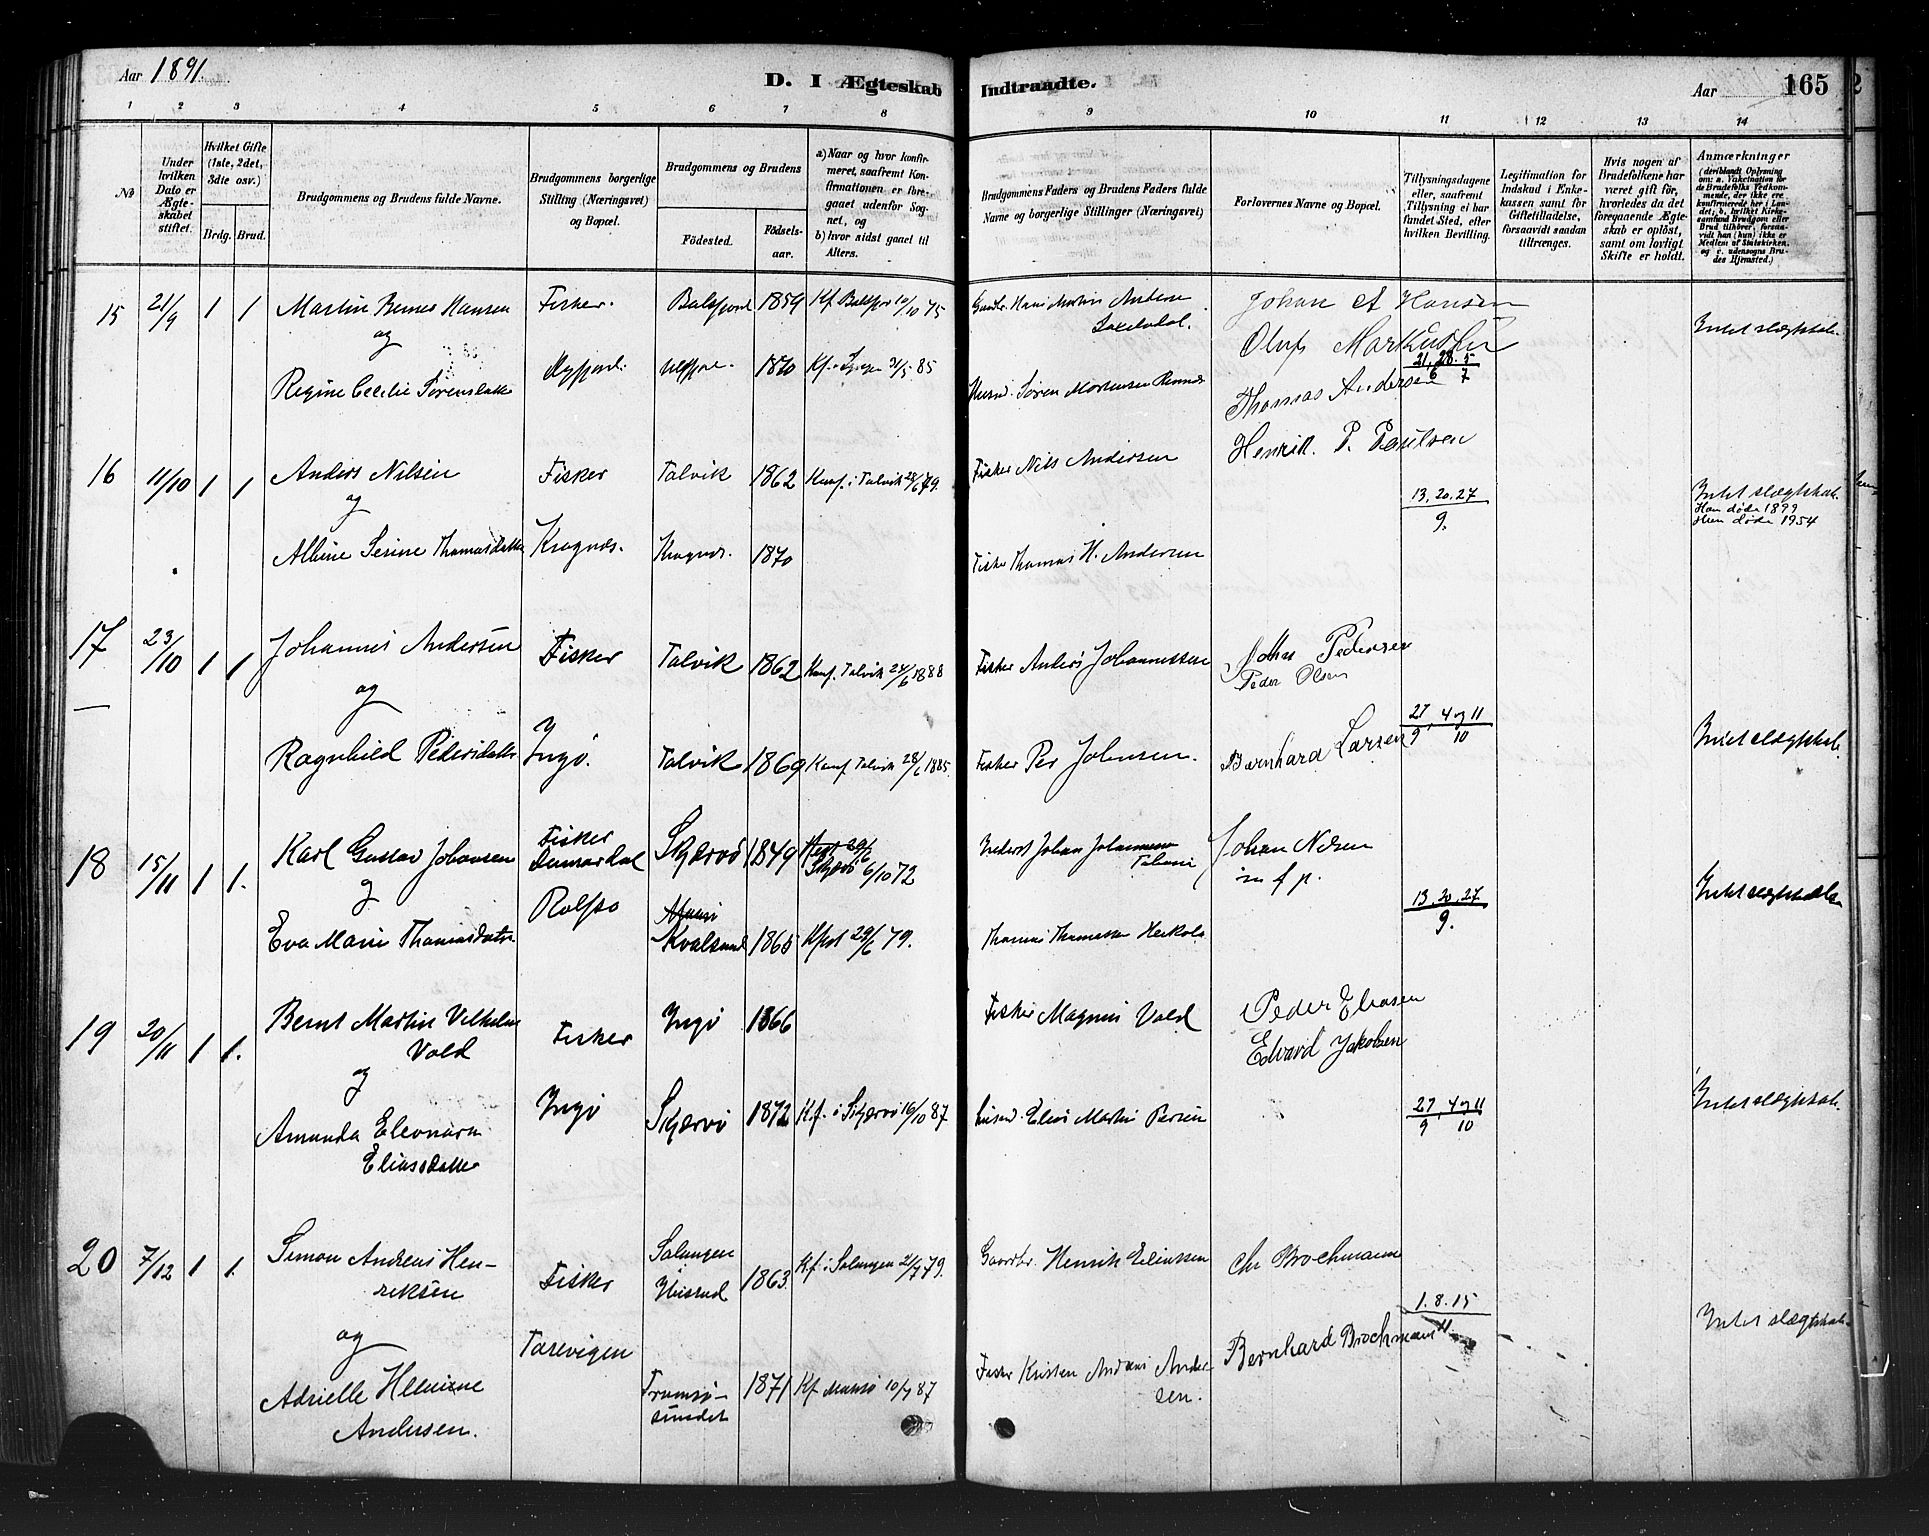 Aar 1891.
D. I Ægteskab Indtraadte.
Aar 165
1 2 3 4 5 6 7 8 9 10 11 12 13 14
No
Under hvilken Dato er Ægteskabet stiftet.
Hvilket Gifte (1ste, 2det, 3die osv.)
Brdg. Brud.
Brudgommens og Brudens fulde Navne.
Brudgommens borgerlige Stilling (Næringsvei) og Bopæl.
Brudgommens og Brudens
Fødested. Fødselsaar.
a) Naar og hvor konfirmeret, saafremt Konfirmationen er foregaaet udenfor Sognet, og
b) hvor sidst gaaet til Alters.
Brudgommens Faders og Brudens Faders fulde Navne og borgerlige Stillinger (Næringsvei)
Forlovernes Navne og Bopæl.
Tillysningsdagene eller, saafremt Tillysning ei har fundet Sted, efter hvilken Bevilling.
Legitimation for Indskud i Enkekassen samt for Giftetilladelse, forsaavidt saadan tiltrænges.
Hvis nogen af Brudefolkene har været gift før, hvorledes da det foregaaende Ægteskab er opløst, samt om lovligt Skifte er holdt.
Anmærkninger (deriblandt Oplysning om: a. Vaccination for de Brudefolks Vedkommende, der ikke ere konfirmerede her i Landet; b. hvilket Kirkesamfund Brudgom eller Brud tilhører, forsaavidt han (hun) ikke er Medlem af Statskirken, og c. udensogns Brudes Hjemsted.)
15 21/9 1 1 Martin Hansen Fisker. Balsfjord 1859 Kf. Balsfjor 10/10 75 Hans Martin Andersen Johan A Hansen
og Oluf
Regine Cecilie Sørensdatter 1870 Kf. 85 Søren Mortensen 21. 28. 5 / 6 7 Intet slægtskab.
Thomas Andersen
16 11/10 1 1 Anders Nilsen Fisker Talvik 1862 Konf. i Talvik 28/6 79. Fisker Nils Andersen Henrik P. Paulsen
og 13. 20. 27 / 9. Intet slægtskab.
Han døde 1899
Hun døde 1954
Albine Serine Thomasdatter Kragnæs. Kragnæs. 1870 Fisker Thomas H. Andersen
17 23/10 1 1 Johannes Andersen Fisker Talvik 1862 Konf. Talvik 24/6 1888 Fisker Anders Johannessen John Pedersen
og Peder Olsen
Ragnhild Pedersdatter Ingø. Talvik 1869 Konf. Talvik 28/6 1885. Fisker Per Johnsen. Bernhard Larsen 27, 4 og 11 / 9 10 Intet slægtskab.
18 15/11 1 1. Karl Gustav Johansen Fisker Skjærvø 1849 Skjærvø 6/10 72 Johan Johannesen Johan Nilsen
og Rolfsø m f p. 13. 20. 27 / 9. Intet slægtskab
Eva Marie Thomasdatter Kvalsund 1865 29/6 79. Thomas Thomassen
19 20/11 1 1. Bernt Martin Vilhelm Vold Fisker Ingø 1866 Fisker Magnus Vold Peder Eliasen
og Edvard Jakobsen
Amanda Eleonora Eliasdatter Ingø Skjærvø 1872 Kf. i Skjærvø 16/10 87 Elias Martin Persen 27, 4 og 11 / 9 10 Intet slægtskab.
20 7/12 1 1. Simon Andreas Henriksen Fisker Salangen 1863. Kf. i Salangen 21/7 79. Gaardbr. Henrik Eliassen Chr Brochmann
og Tarevigen 1. 8. 15 / 11. Intet slægtskab.
Adrielle Henrine Andersen. Tromsøsundet 1871 Kf. Maasø 10/7 87 Fisker Kristen Andreas Andersen. Bernhard Brochmann